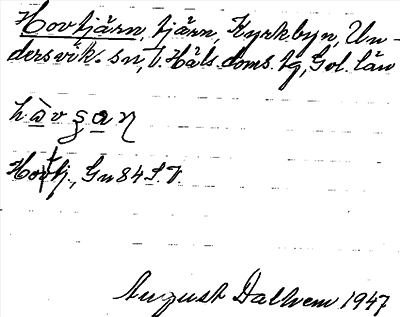 Hovtjärn, tjärn, Kyrkbyn, Un-
dersvik sn, V. Häls. doms. tg, Gvl. län
Hovtj., Gu 84 S.V.
August Dalhem 1947